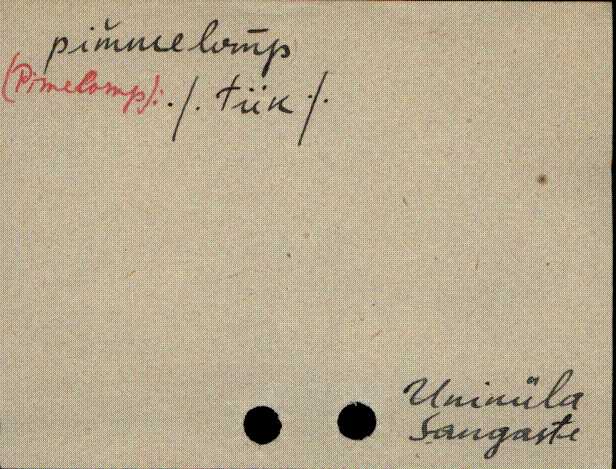 pim̆melom̄p
(Pimelomp): ./. tiik ./.
Uniküla
Sangaste